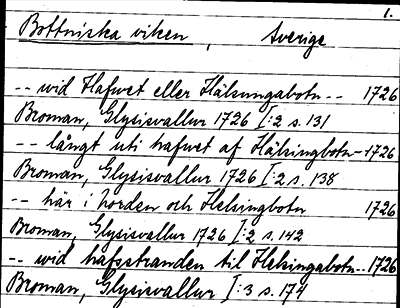 1.
Bottniska viken, Sverige
-- wid Hafwet eller Hälsingabotn -- 1726
Broman, Glysisvallur 1726 I:2 s. 131
-- långt uti hafwet af Hälsingbotn -- 1726
Broman, Glysisvallur 1726 I:2 s. 138
-- här i Norden och Helsingbotn 1726
Broman, Glysisvallur 1726 I:2 s. 142
-- wid hafsstranden til Helsingabotn -- 1726
Broman, Glysisvallur I:3 s. 174